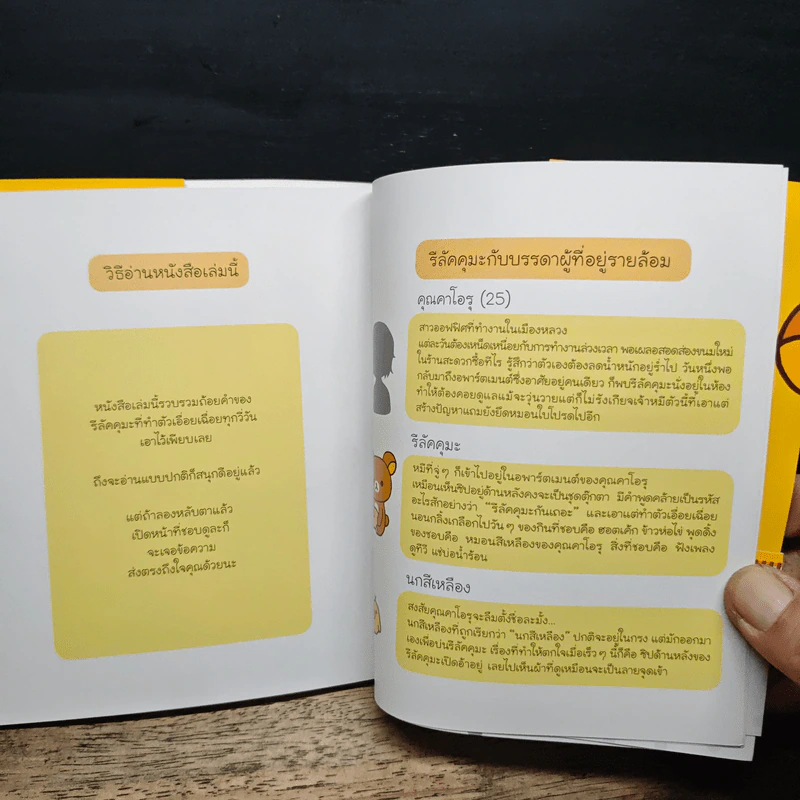 วิธีอ่านหนังสือเล่มนี้
หนังสือเล่มนี้รวบรวมถ้อยคำของ
รีลัคคุมะที่ทำตัวเอื่อยเฉื่อยทุกวี่วัน
เอาไว้เพียบเลย
ถึงจะอ่านแบบปกติก็สนุกดีอยู่แล้ว
แต่ถ้าลองหลับตาแล้ว
เปิดหน้าที่ชอบดูละก็
จะเจอข้อความ
ส่งตรงถึงใจคุณด้วยนะ
รีลัคคุมะกับบรรดาผู้ที่อยู่รายล้อม
คุณคาโอรุ (25)
สาวออฟฟิศที่ทำงานในเมืองหลวง
แต่ละวันต้องเหน็ดเหนื่อยกับการทำงานล่วงเวลา พอเผลอสอดส่องขนมใหม่
ในร้านสะดวกซื้อทีไร รู้สึกว่าตัวเองต้องลดน้ำหนักอยู่ร่ำไป วันหนึ่งพอ
กลับมาถึงอพาร์ตเมนต์ซึ่งอาศัยอยู่คนเดียว ก็พบรีลัคคุมะนั่งอยู่ในห้อง
ทำให้ต้องคอยดูแลแม้จะวุ่นวายแต่ก็ไม่รังเกียจเจ้าหมีตัวนี้ที่เอาแต่
สร้างปัญหาแถมยังยึดหมอนใบโปรดไปอีก
รีลัคคุมะ
หมีที่จู่ๆ ก็เข้าไปอยู่ในอพาร์ตเมนต์ของคุณคาโอรุ
เหมือนเห็นซิปอยู่ด้านหลังคงจะเป็นชุดตุ๊กตา มีคำพูดคล้ายเป็นรหัส
อะไรสักอย่างว่า “รีลัคคุมะกันเถอะ” และเอาแต่ทำตัวเอื่อยเฉื่อย
นอนกลิ้งเกลือกไปวันๆ ของกินที่ชอบคือ ฮอตเค้ก ข้าวห่อไข่ พุดดิ้ง
ของชอบคือ หมอนสีเหลืองของคุณคาโอรุ สิ่งที่ชอบคือ ฟังเพลง
ดูทีวี แช่บ่อน้ำร้อน
นกสีเหลือง
สงสัยคุณคาโอรุจะลืมตั้งชื่อละมั้ง...
นกสีเหลืองที่ถูกเรียกว่า “นกสีเหลือง” ปกติจะอยู่ในกรง แต่มักออกมา
เองเพื่อบ่นรีลัคคุมะ เรื่องที่ทำให้ตกใจเมื่อเร็วๆ นี้ก็คือ ซิปด้านหลังของ
รีลัคคุมะเปิดอ้าอยู่ เลยไปเห็นผ้าที่ดูเหมือนจะเป็นลายจุดเข้า